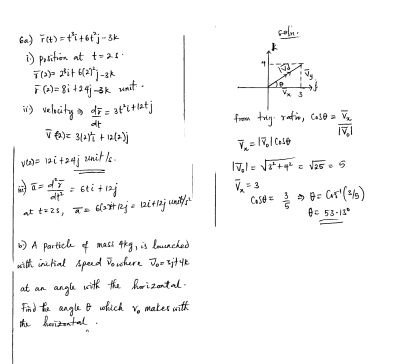 6a) r̄(t) = t³i + 6t²j - 3k
i) position at t = 2s.
r̄(2) = 2³i + 6(2)²j - 3k
r̄(2) = 8i + 24j - 3k unit.
ii) velocity ⇒ dr̄/dt = 3t²i + 12tj
v̄(2) = 3(2)²i + 12(2)j
v(2) = 12i + 24j unit/s.
iii) ā = d²r̄/dt² = 6ti + 12j
at t = 2s, ā = 6(2)i + 12j = 12i + 12j unit/s²
b) A particle of mass 4kg, is launched
with initial speed v̄₀ where v̄₀ = 3j + 4k
at an angle with the horizontal.
Find the angle θ which v₀ makes with
the horizontal.
soln.
k
4
|v̄₀|
v̄y
θ
v̄x
3
j
from trig. ratio, Cosθ = v̄x/|v̄₀|
v̄x = |v̄₀| Cosθ
|v̄₀| = √3² + 4² = √25 = 5
v̄x = 3
Cosθ = 3/5 ⇒ θ = Cos⁻¹(3/5)
θ = 53.13°